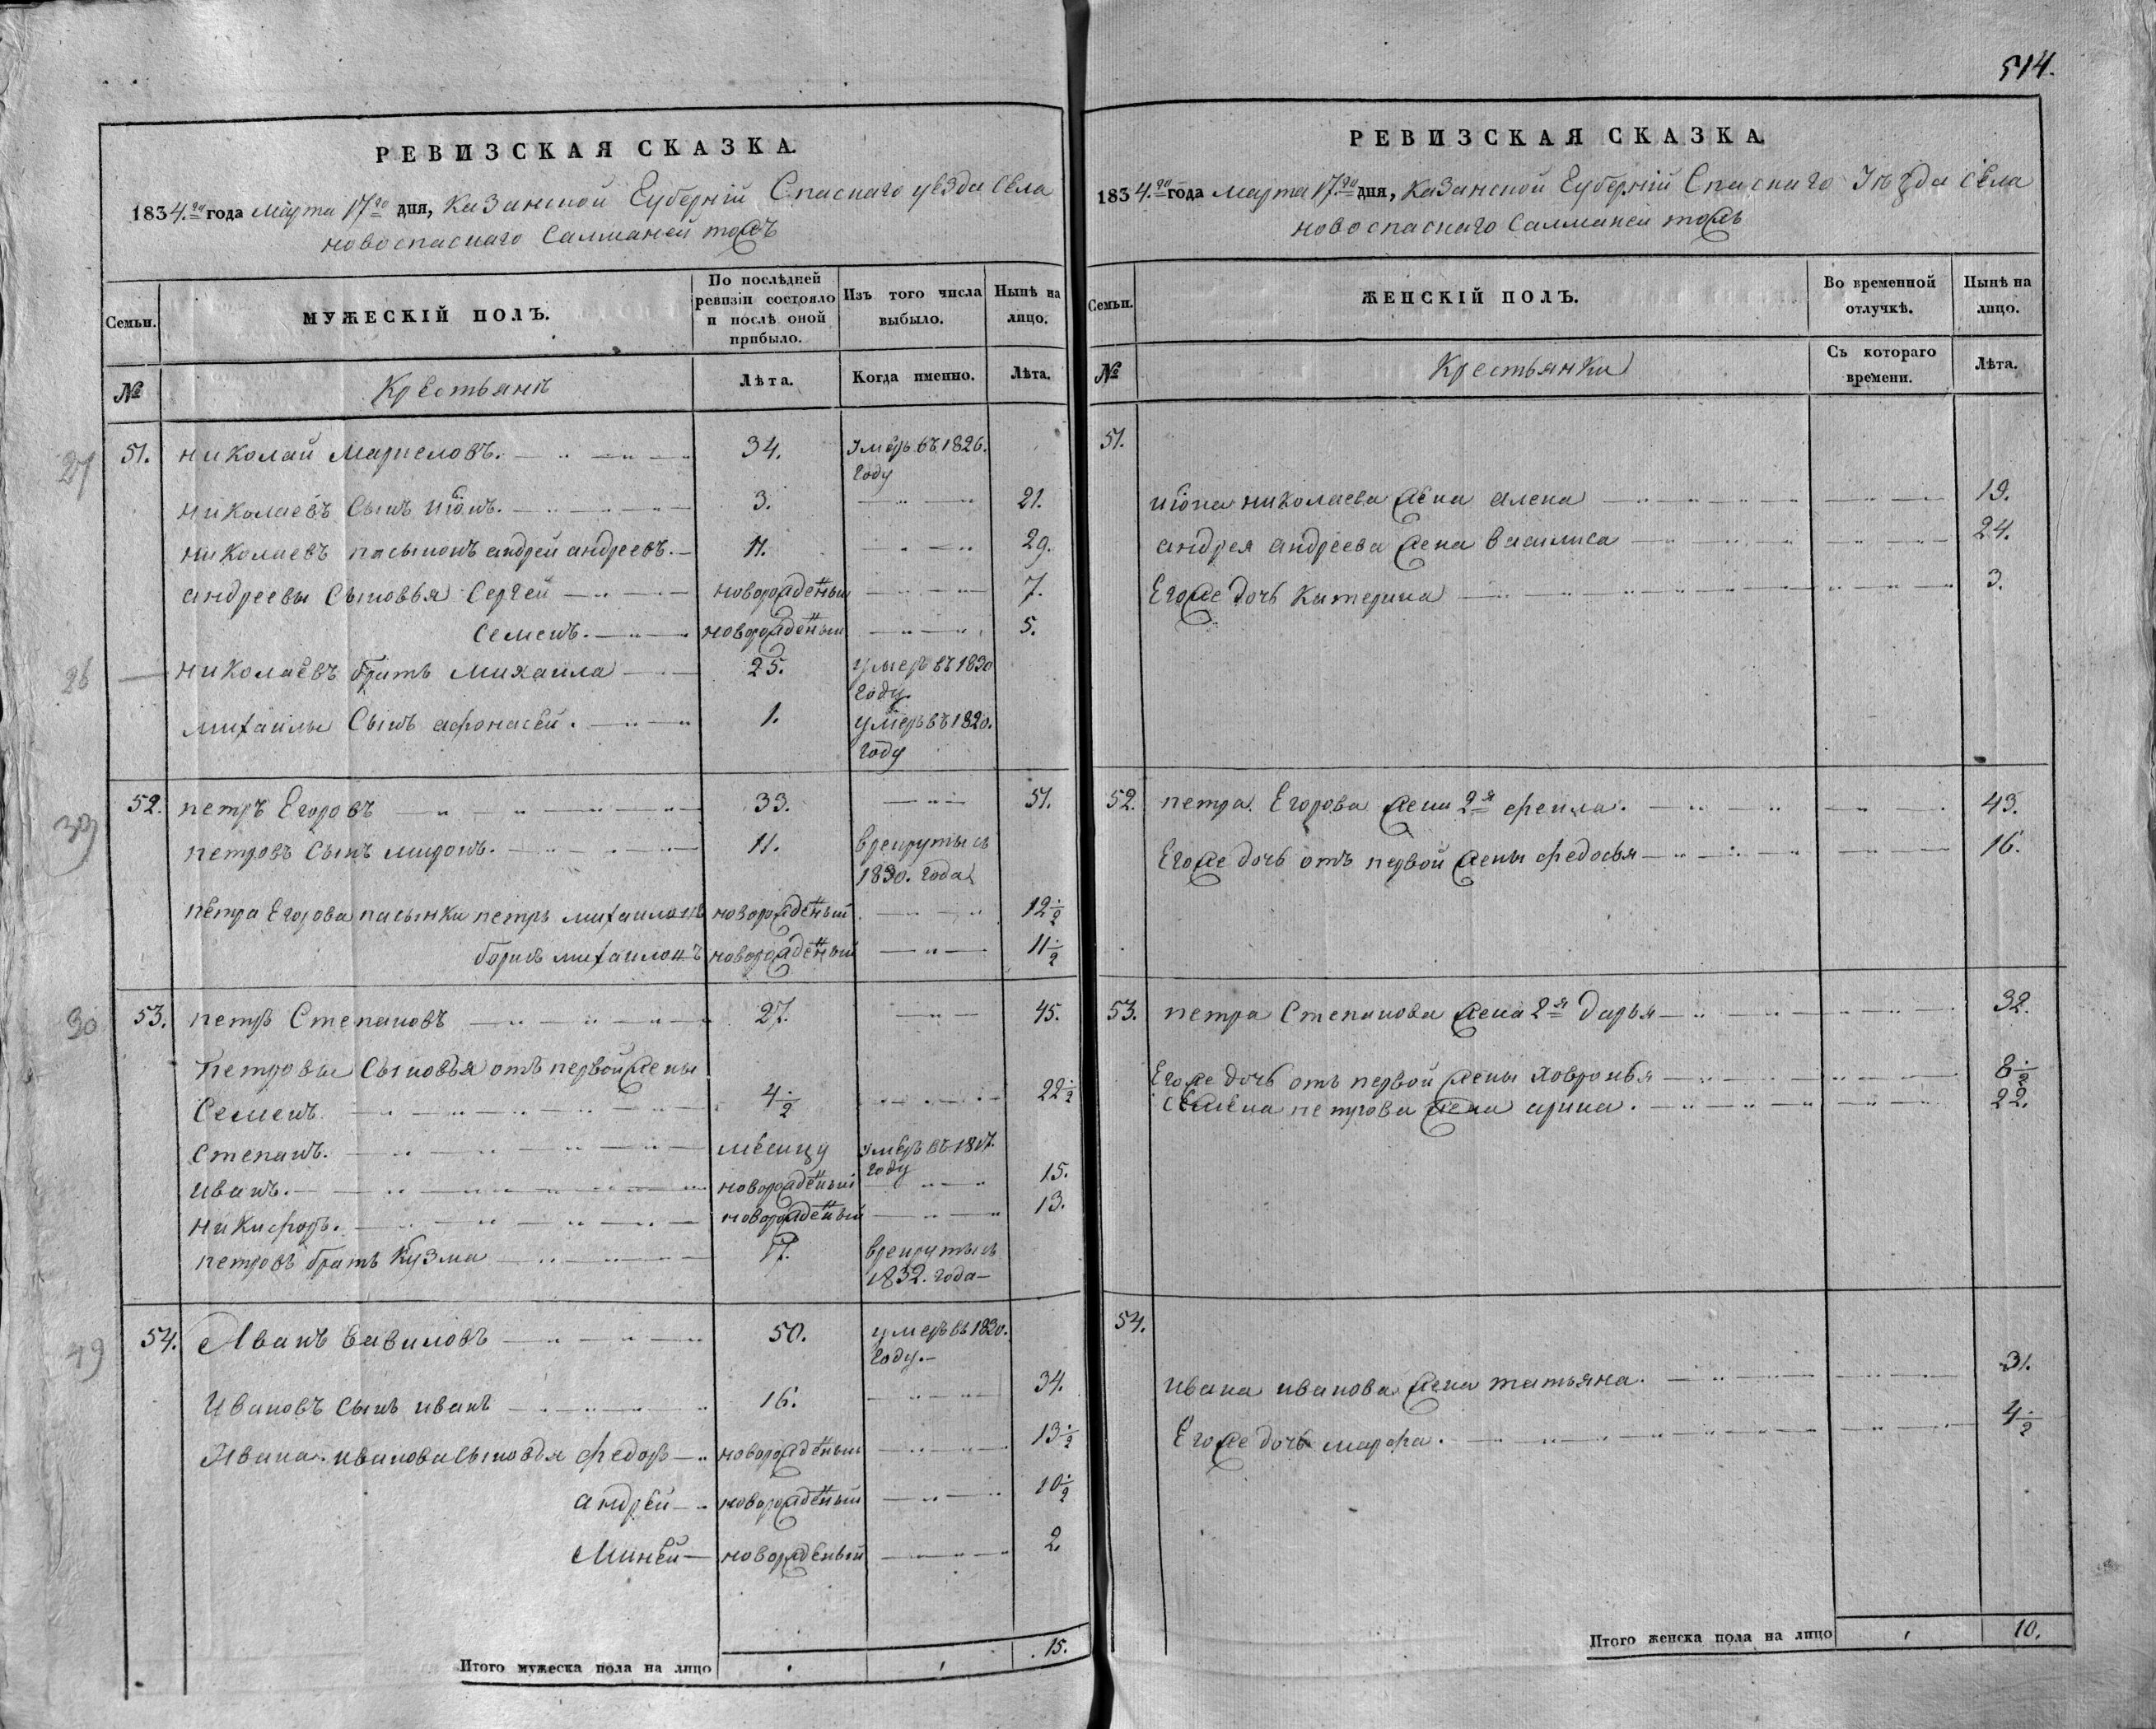 514.
РЕВИЗСКАЯ СКАЗКА.
1834.го года марта 17го дня, Казанской Губерній Спаскаго уезда села
новоспаскаго Салманы тожъ
Семьи. МУЖЕСКІЙ ПОЛЪ. По послѣдней ревизіи состояло и послѣ оной прибыло. Изъ того числа выбыло. Нынѣ на лицо.
№ Крестьянъ Лѣта. Когда именно. Лѣта.
27 51. николай 34. Умеръ въ 1826.
году
николаевъ Сынъ иіонъ. 3. 21.
николаевъ пасынокъ андрей андреевъ. 11. 29.
андреевы Сыновья Сергей новорожденый 7.
Семенъ. новорожденый 5.
26 николаевъ братъ михаила 25. умеръ въ 1830
году.
михаилы Сынъ афонасей. 1. умеръ въ 1820.
году
30 52. петръ Егоровъ 33. 51.
петровъ Сынъ миронъ. 11. врекруты съ
1830. года
петра Егорова пасынки петръ михаиловъ новорожденый 12 ½
борисъ михаиловъ новорожденый 11 ½
30 53. петръ Степановъ 27. 45.
Петровы Сыновья отъ первой жены
Семенъ. 4 ½ 22 ½
Степанъ. месицу умеръ въ 1817.
году
иванъ. новорожденый 15.
никифоръ. новорожденый 13.
петровъ братъ Кузма 17. врекруты съ
1832. года
49 54. Иванъ вавиловъ 50. умеръ въ 1820.
году.
Ивановъ Сынъ иванъ 16. 34.
Ивана. иванова Сыновья федоръ новорожденый 13 ½
андрей новорожденый 10 ½
Миней новорожденый 2.
Итого мужеска пола на лицо 15.
РЕВИЗСКАЯ СКАЗКА.
1834.го года марта 17.го дня, Казанской Губерній Спаскаго Уезда села
новоспаскаго Салманы тожъ
Семьи. ЖЕНСКІЙ ПОЛЪ. Во временной отлучкѣ. Нынѣ на лицо.
№ Крестьянки Съ котораго времени. Лѣта.
51.
иіона николаева жена алена 19.
андрея андреева жена василиса 24.
Егоже дочь Катерина 3.
52. петра. Егорова жена 2я фекла. 43.
Егоже дочь отъ первой жены федосья 16.
53. петра Степанова жена 2я дарья 32.
Егоже дочь отъ первой жены ховронья 8 ½
семена петрова жена арина. 22.
54.
ивана иванова жена татьяна. 31.
Егоже дочь марфа. 4 ½
Итого женска пола на лицо 10.